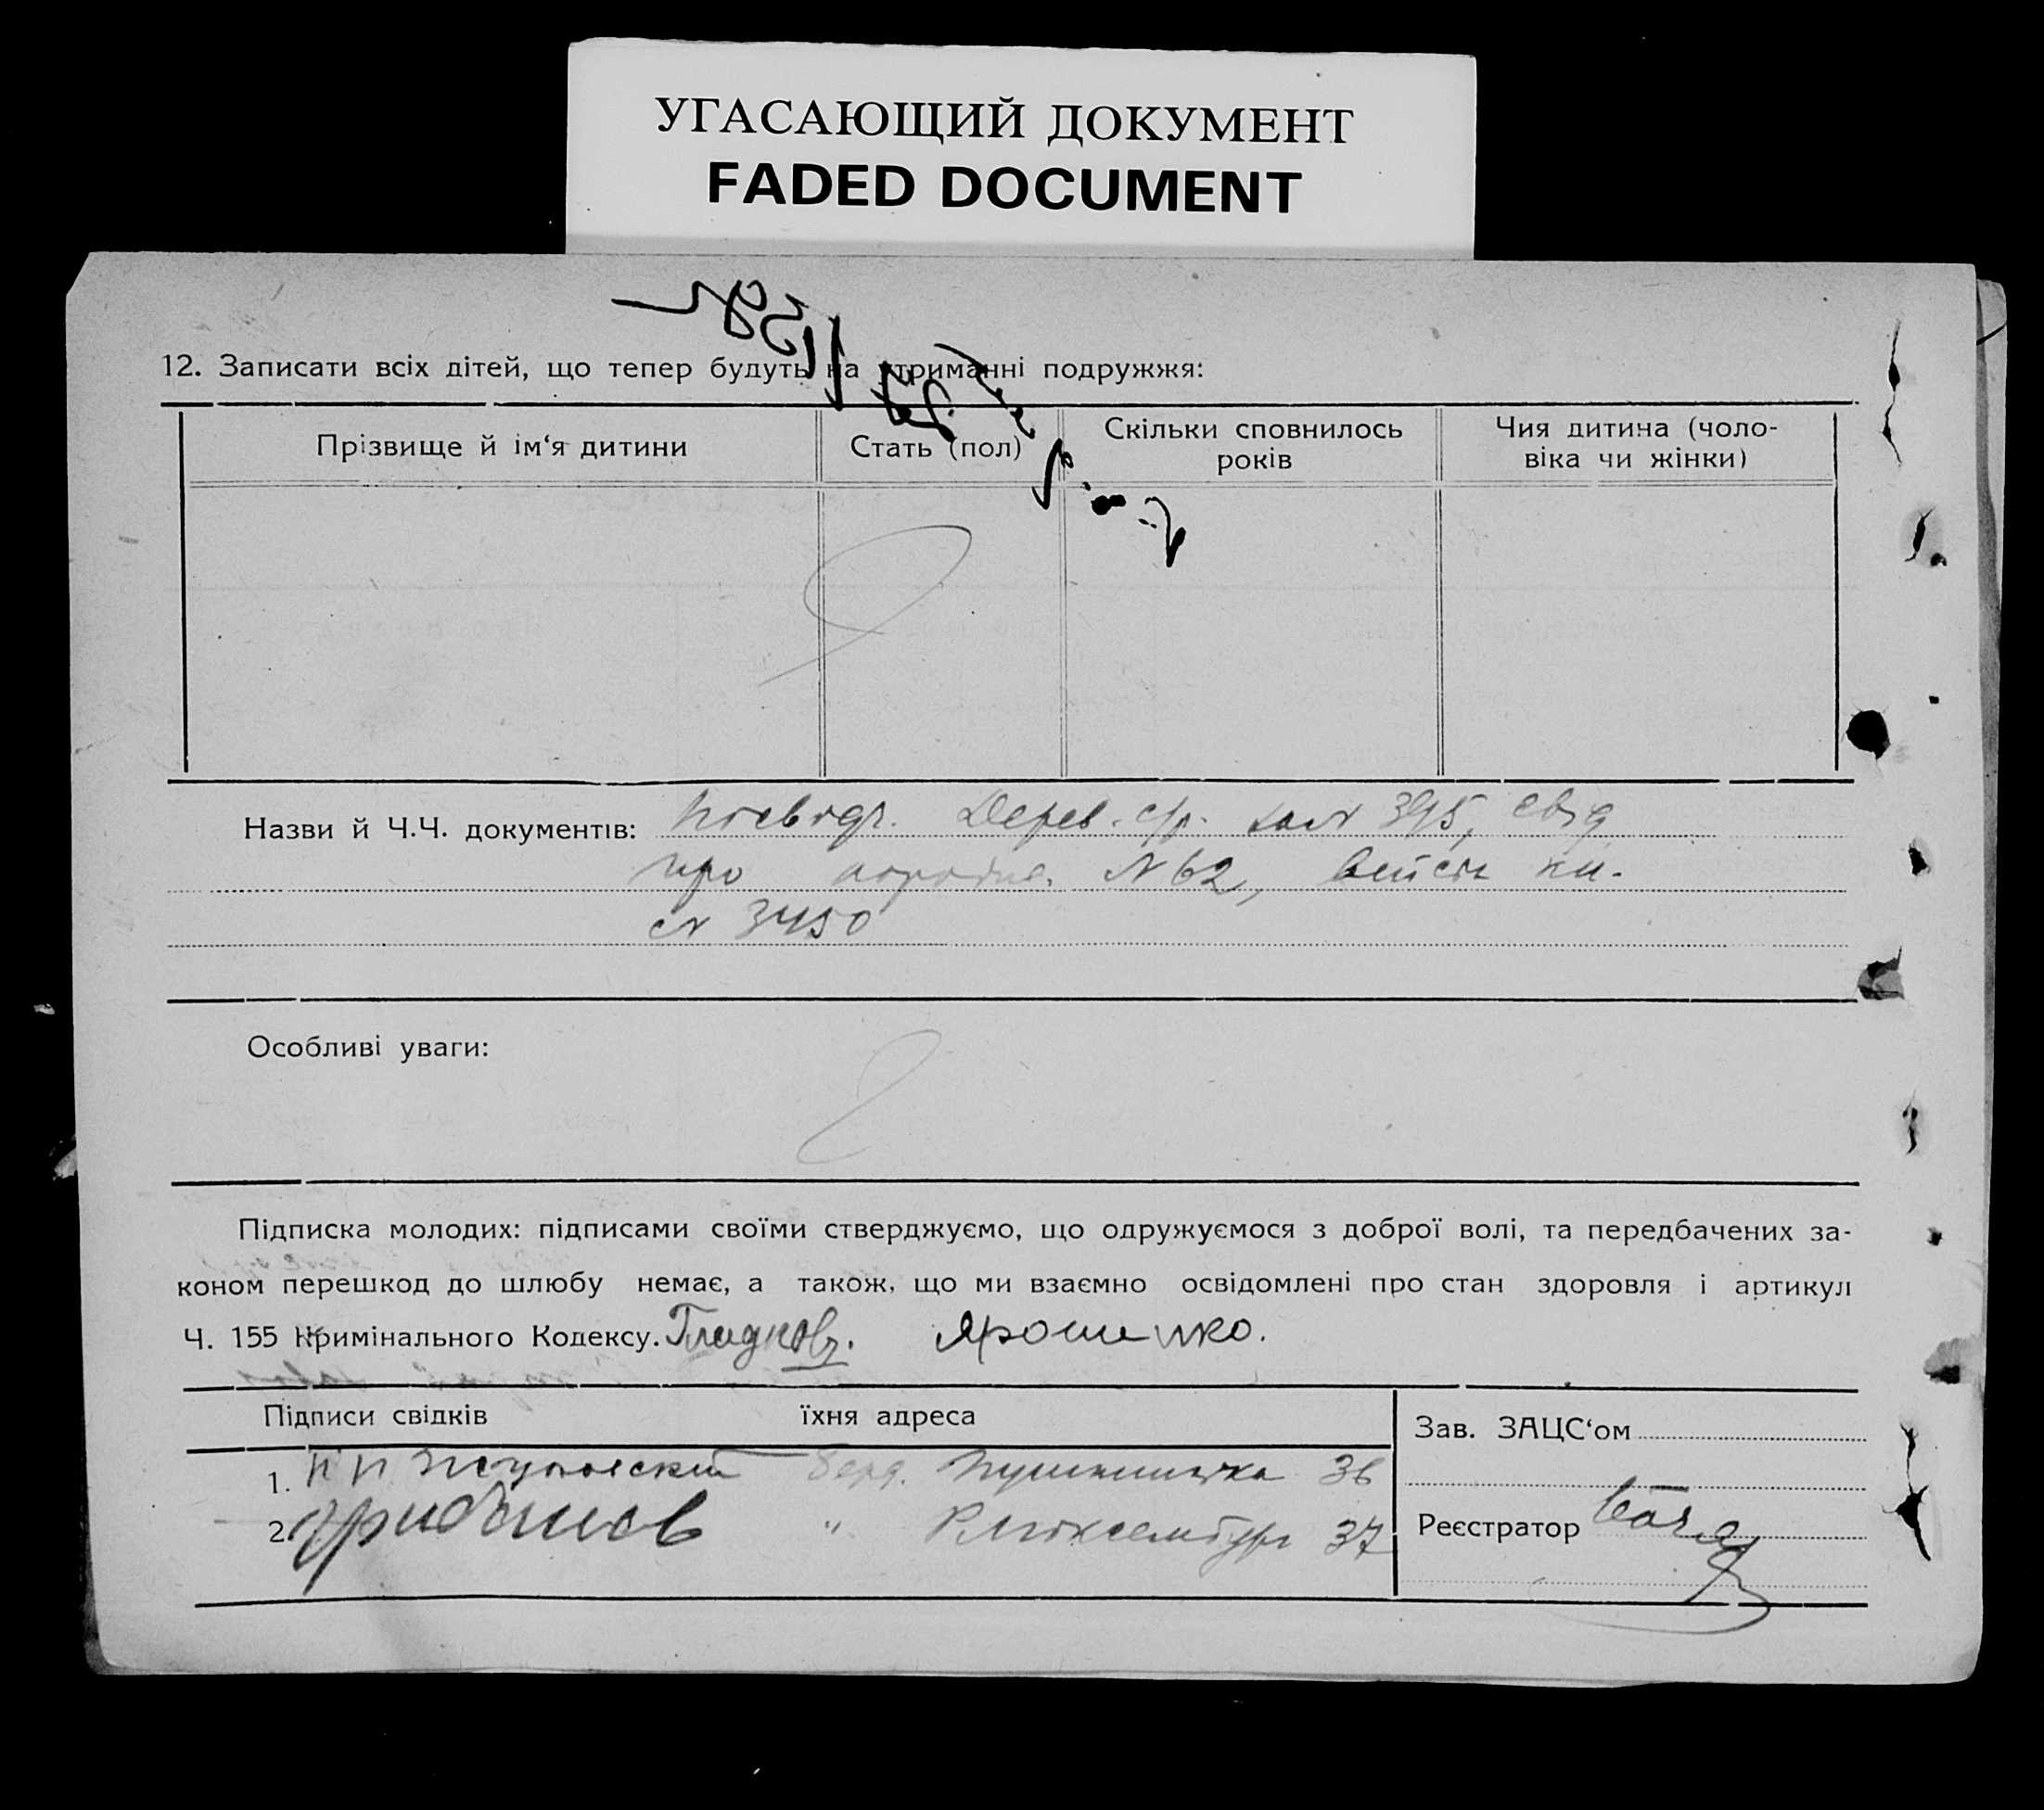 УГАСАЮЩИЙ ДОКУМЕНТ
FADED DOCUMENT
12. Записати всіх дітей, що тепер будуть на утриманні подружжя:
Прізвище й ім‘я дитини
Стать (пол)
Скільки сповнилось
років
Чия дитина (чоло-
віка чи жінки)
Назви й Ч.Ч. документів: Дерев. с/р. 395,
про № 62, кн.
№ 3450
Особливі уваги:
Підписка молодих: підписами своїми стверджуємо, що одружуємося з доброї волі, та передбачених за-
коном перешкод до шлюбу немає, а також, що ми взаємно освідомлені про стан здоровля і артикул
Ч. 155 Кримінального Кодексу. Ярошенко.
Підписи свідків їхня адреса
Зав. ЗАЦС‘ом
1. Берд. 36
2. " Р. Люксембург 37
Реєстратор